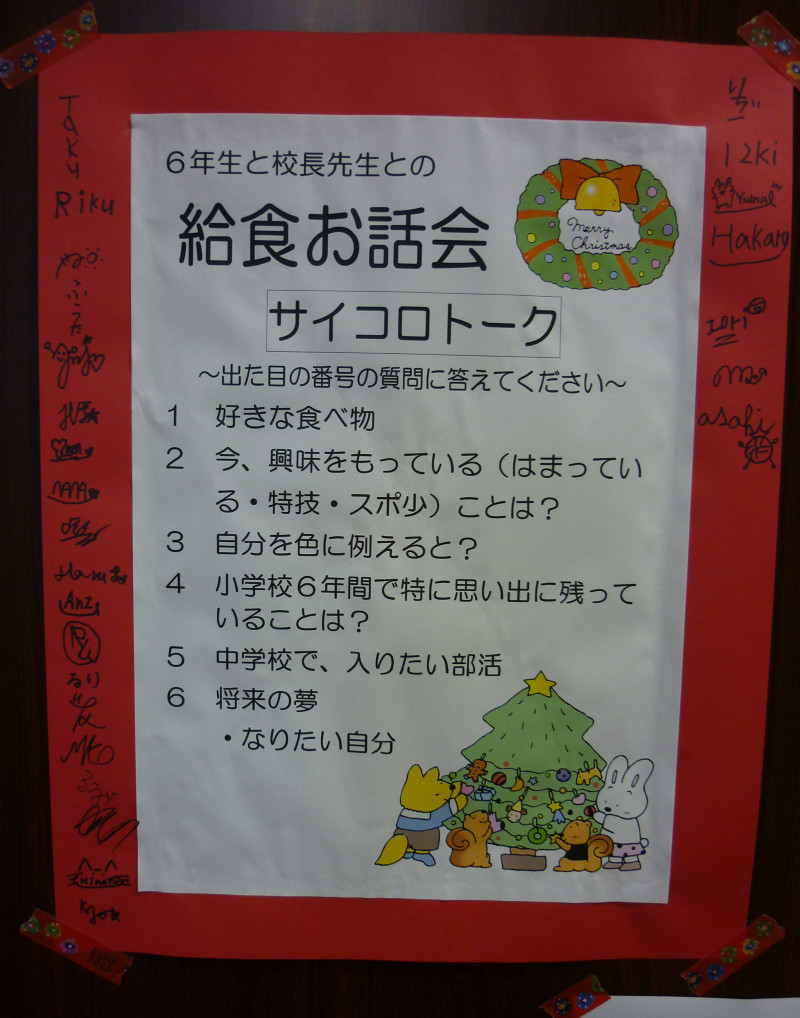 6年生と校長先生との
給食お話会
Merry
Christmas
サイコロトーク
～出た目の番号の質問に答えてください～
1 好きな食べ物
2 今、興味をもっている（はまってい
る・特技・スポ少）ことは？
3 自分を色に例えると？
4 小学校6年間で特に思い出に残って
いることは？
5 中学校で、入りたい部活
6 将来の夢
・なりたい自分
TAKU
Riku
ふうた
Anz
るり
12ki
Yuina
Hakaru
iori
asahi